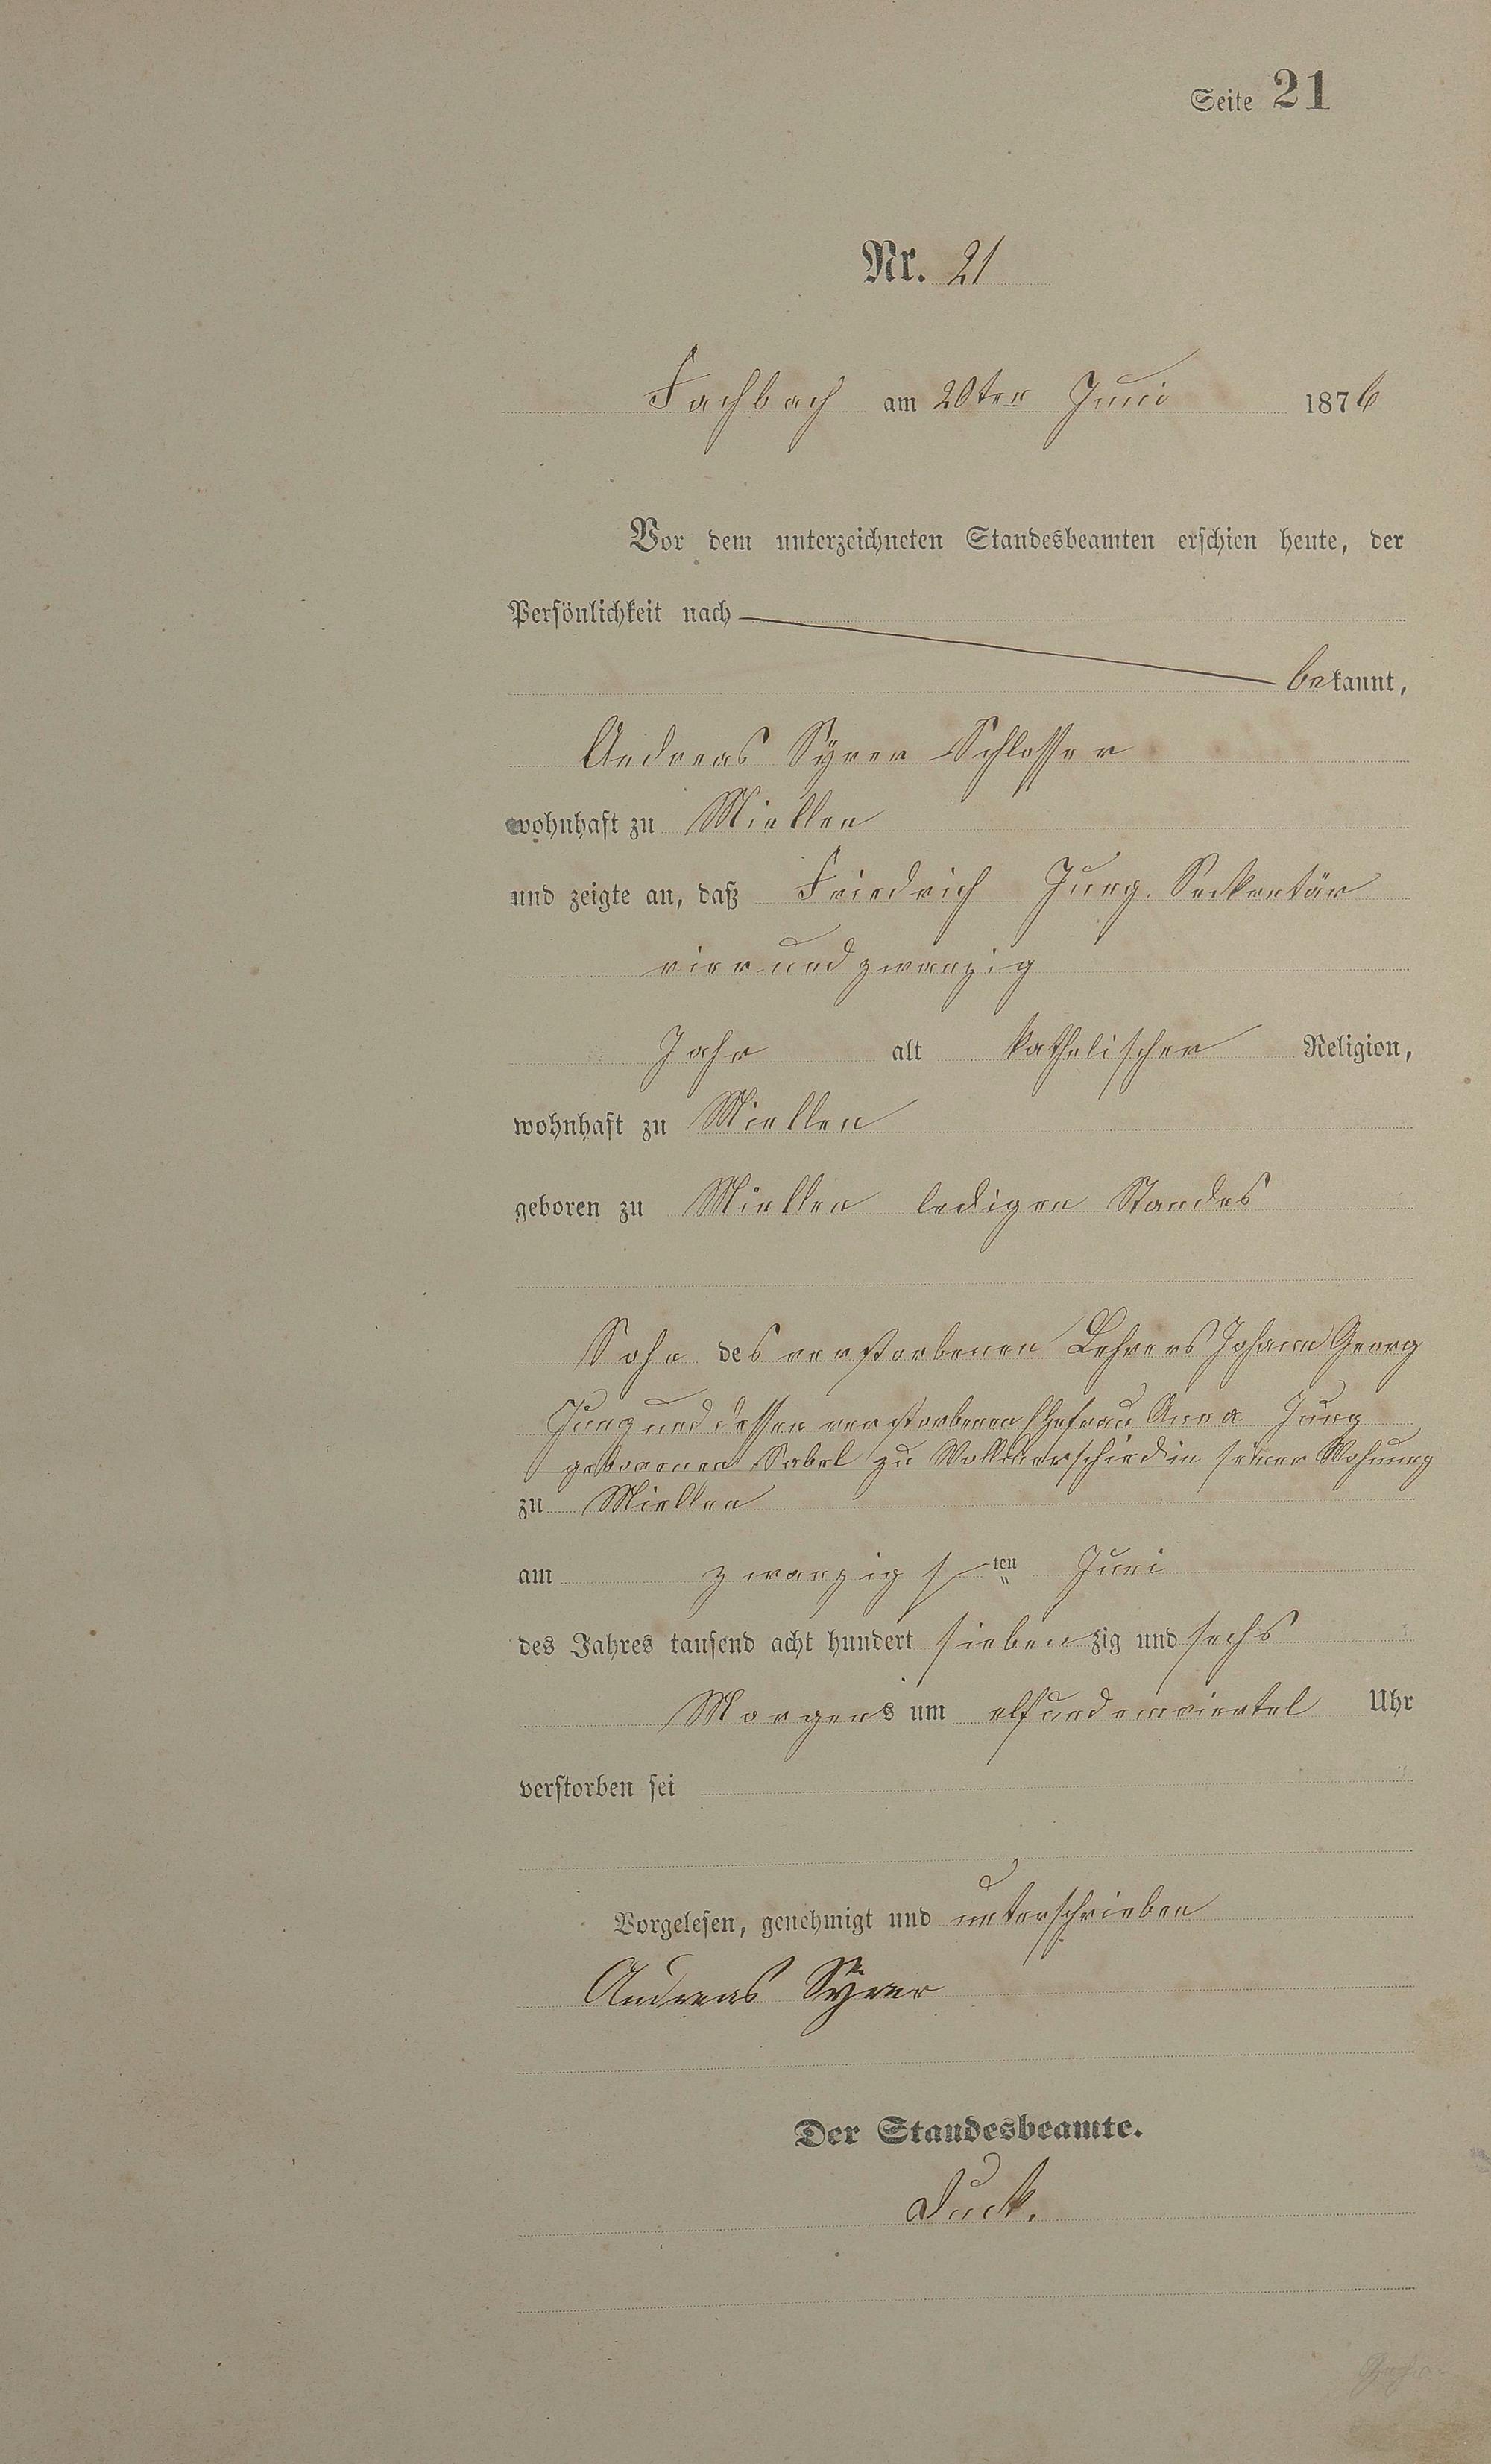 Seite 21
Nr. 21
Fachbach am 20ten Juni 1876
Vor dem unterzeichneten Standesbeamten erschien heute, der
Persönlichkeit nach
bekannt,
Andreas Syrer Schlosser
wohnhaft zu Miellen
und zeigte an, daß Friedrich Jung. Seckretär
vierundzwanzig
Jahr alt katholischer Religion,
wohnhaft zu Miellen
geboren zu Miellen ledigen Standes
Sohn des verstorbenen Lehrers Johann Georg
Jung und dessen verstorbenen Ehefrau Anna Jung
geborenen Sabel zu Wollmerschied in seiner Wohnung
zu Miellen
am zwanzigsten Juni
des Jahres tausend acht hundert siebenzig und sechs
Morgens um elfundeinviertel Uhr
verstorben sei
Vorgelesen, genehmigt und unterschrieben
Andreas Syrer
Der Standesbeamte.
Duck.